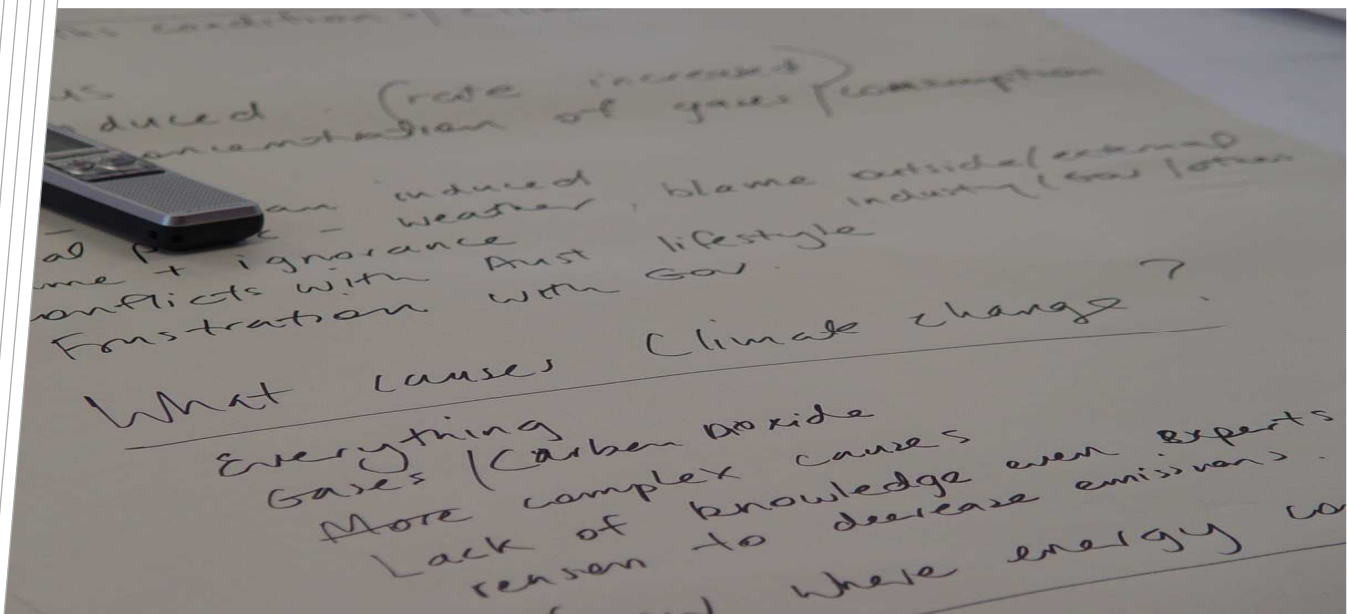 condition
(rate increased)
duced
of gases / consumption
induced
weather, blame outside/external
industry / Gov / other
+ ignorance
onflicts with Aust lifestyle
Frustration with Gov.
What causes Climate change?
Everything
Gases / Carbon Dioxide
More complex causes
Lack of knowledge even experts
reason to decrease emissions.
where energy co